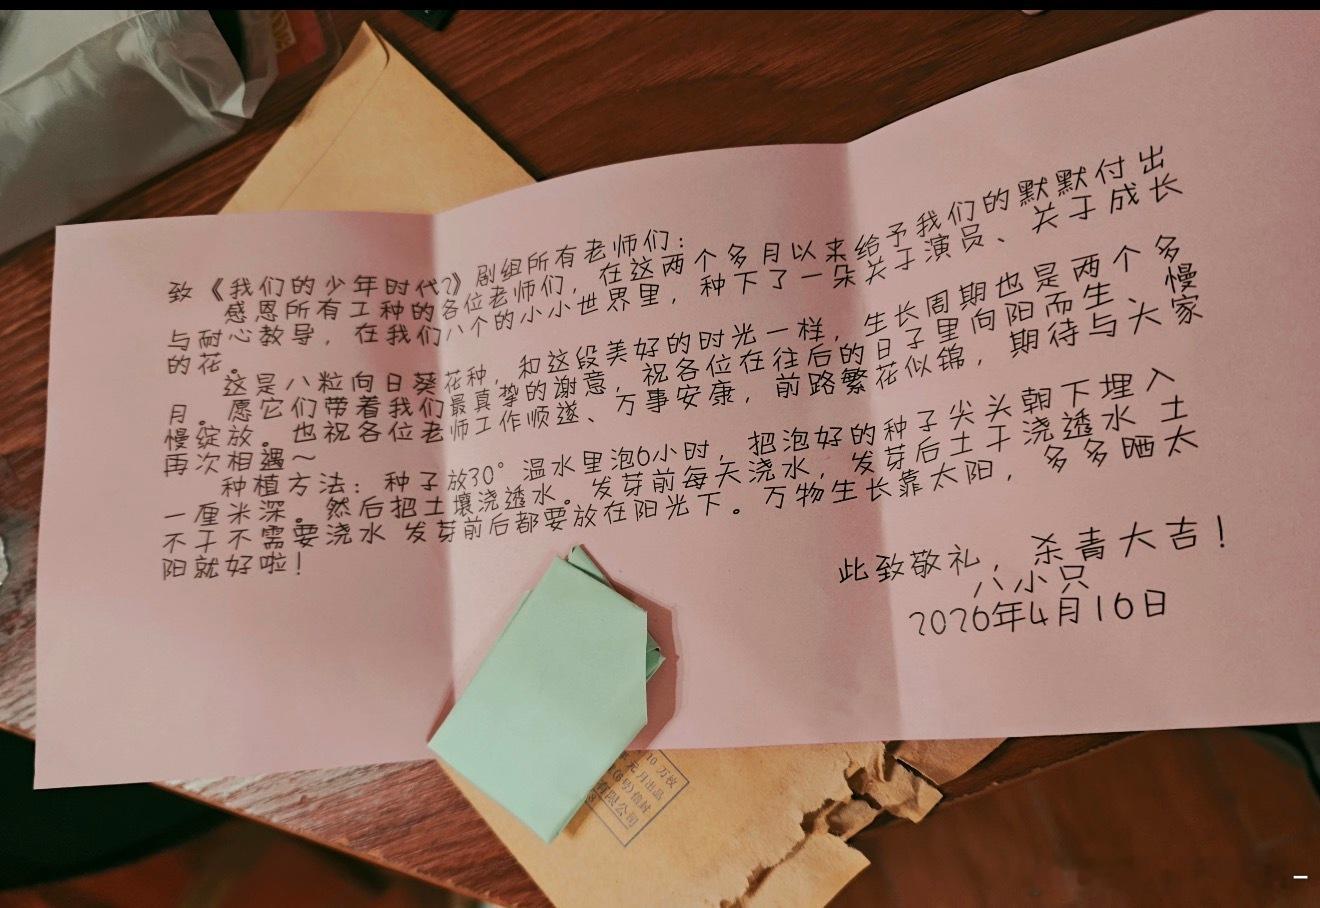 致《我们的少年时代2》剧组所有老师们：
感恩所有工种的各位老师们，在这两个多月以来给予我们的默默付出
与耐心教导，在我们八个的小小世界里，种下了一朵关于演员、关于成长
的花。
这是八粒向日葵花种，和这段美好的时光一样，生长周期也是两个多
月。愿它们带着我们最真挚的谢意，祝各位在往后的日子里向阳而生、慢
慢绽放。也祝各位老师工作顺遂、万事安康，前路繁花似锦，期待与大家
再次相遇～
种植方法：种子放30°温水里泡6小时，把泡好的种子尖头朝下埋入
一厘米深。然后把土壤浇透水。发芽前每天浇水，发芽后土干浇透水 土
不干不需要浇水 发芽前后都要放在阳光下。万物生长靠太阳，多多晒太
阳就好啦！
此致敬礼，杀青大吉！
八小只
2026年4月16日
10万枚
元月出品
(6号)信封
有限公司